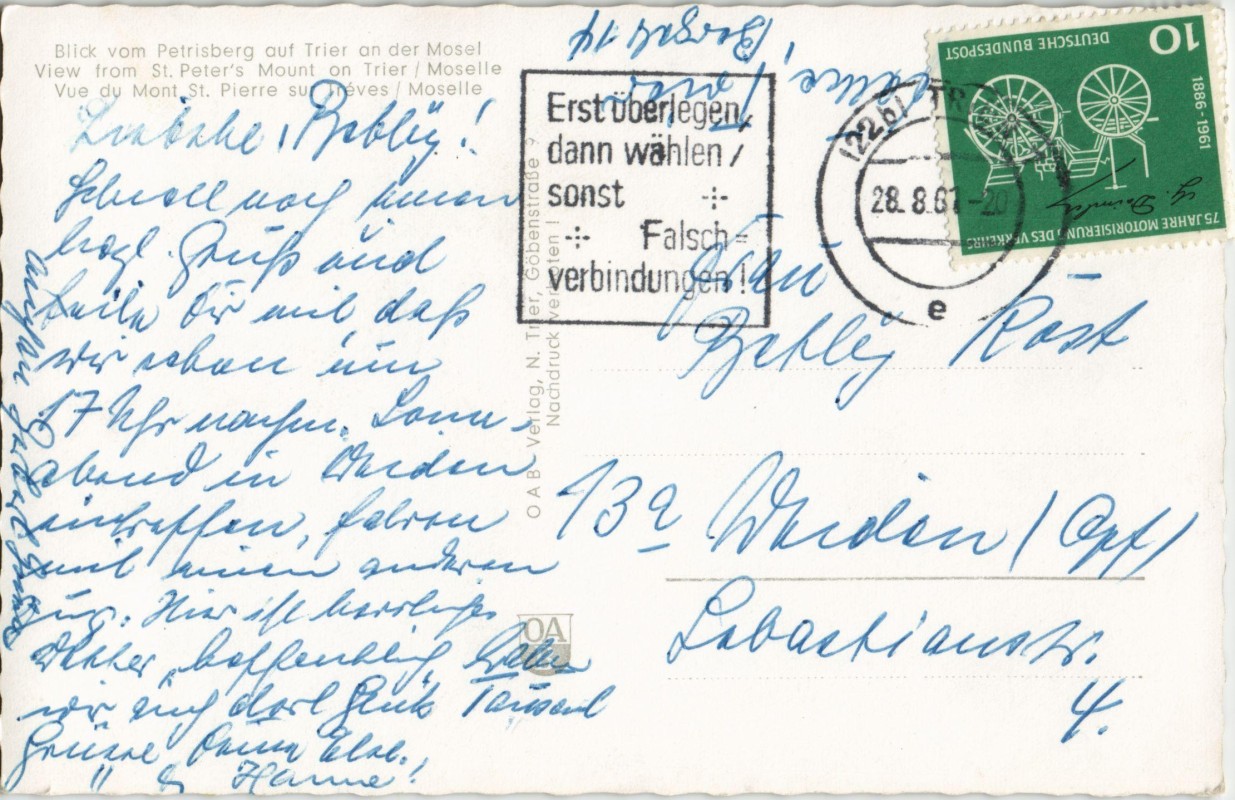 Blick vom Petrisberg auf Trier an der Mosel
View from St. Peter's Mount on Trier / Moselle
Vue du Mont St. Pierre sur Trèves / Moselle
Liebche, Bebly!
Schnell noch einen
hzgl. Gruß und
teile Dir mit daß
wir schon um
17 Uhr nachm. Sonn-
abend in Weiden
eintreffen, fahren
mit einem anderen
Zug. Hier ist herrliches
Wetter, hoffentlich haben
wir auch dort Glück Tausend
Grüsse Deine Else.,
" & Hanne!
OAB - Verlag, N. Trier, Göbenstraße 9
Nachdruck verboten!
OA
Erst überlegen,
dann wählen /
sonst
Falsch=
verbindungen!
(22b) TRIER
28.8.61-20
e
10
DEUTSCHE BUNDESPOST
1886-1961
G. Daimler
75 JAHRE MOTORISIERUNG DES VERKEHRS
Frau
Bebly Rast
13a Weiden / Opf /
Sebastianstr.
4.